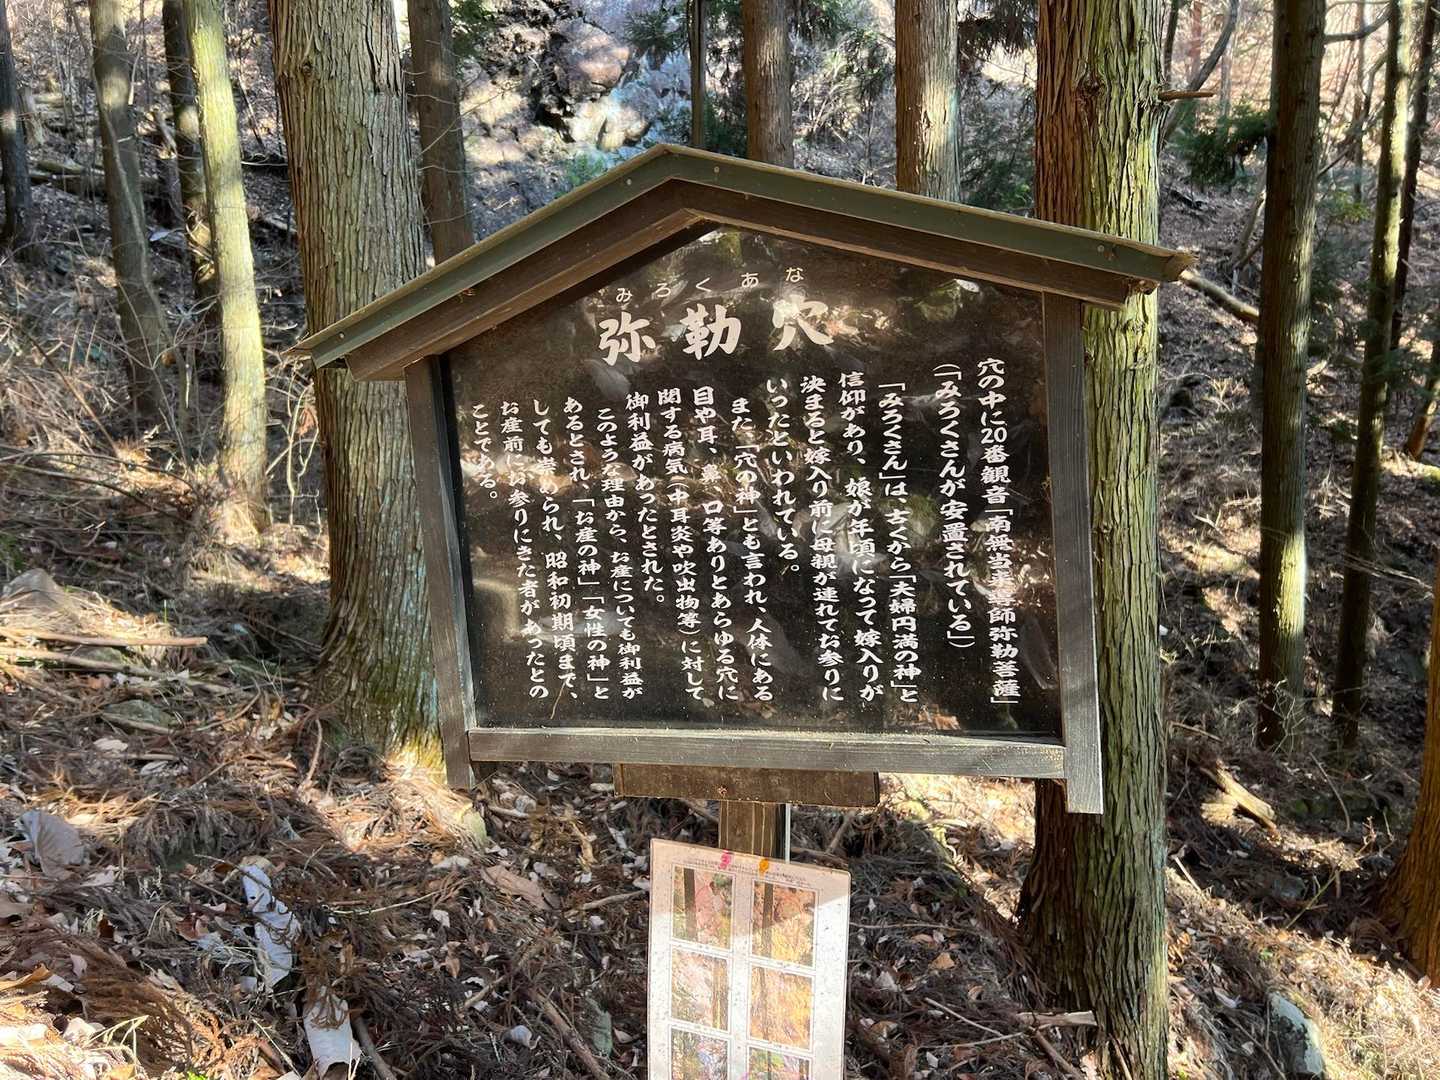 みろくあな
弥勒穴
穴の中に20番観音「南無当来導師弥勒菩薩」
(「みろくさんが安置されている」)
「みろくさん」は、古くから「夫婦円満の神」と
信仰があり、娘が年頃になって嫁入りが
決まると嫁入り前に母親が連れてお参りに
いったといわれている。
また、「穴の神」とも言われ、人体にある
目や耳、鼻、口等ありとあらゆる穴に
関する病気(中耳炎や吹出物等)に対して
御利益があったとされた。
このような理由から、お産についても御利益が
あるとされ、「お産の神」「女性の神」と
しても崇められ、昭和初期頃まで、
お産前にお参りにきた者があったとの
ことである。